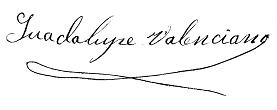 Guadalupe Valenciano